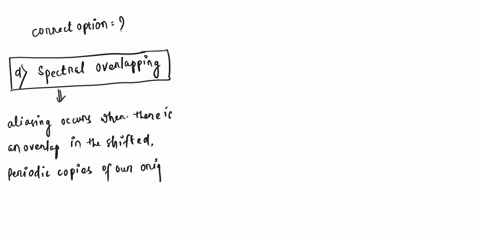 correct option = ?
d) Spectral overlapping
⇓
aliasing occurs when there is
an overlap in the shifted,
periodic copies of our orig